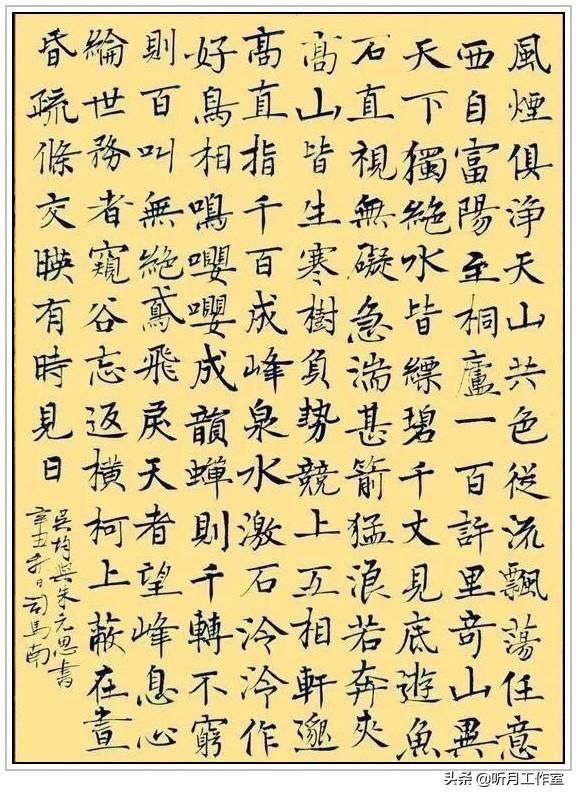 風煙俱浄天山共色從流飄蕩任意
西自富陽至桐廬一百許里竒山異
天下獨絶水皆縹碧千丈見底遊魚
石直視無礙急湍甚箭猛浪若奔夾
髙山皆生寒樹負勢競上互相軒邈
髙直指千百成峰泉水激石泠泠作
好鳥相鳴嚶嚶成韻蟬則千轉不窮
則百叫無絶鳶飛戾天者望峰息心
綸世務者窺谷忘返横柯上蔽在晝
昏疏條交映有時見日
吳均與朱元思書
辛丑日司馬南
头条 @听月工作室